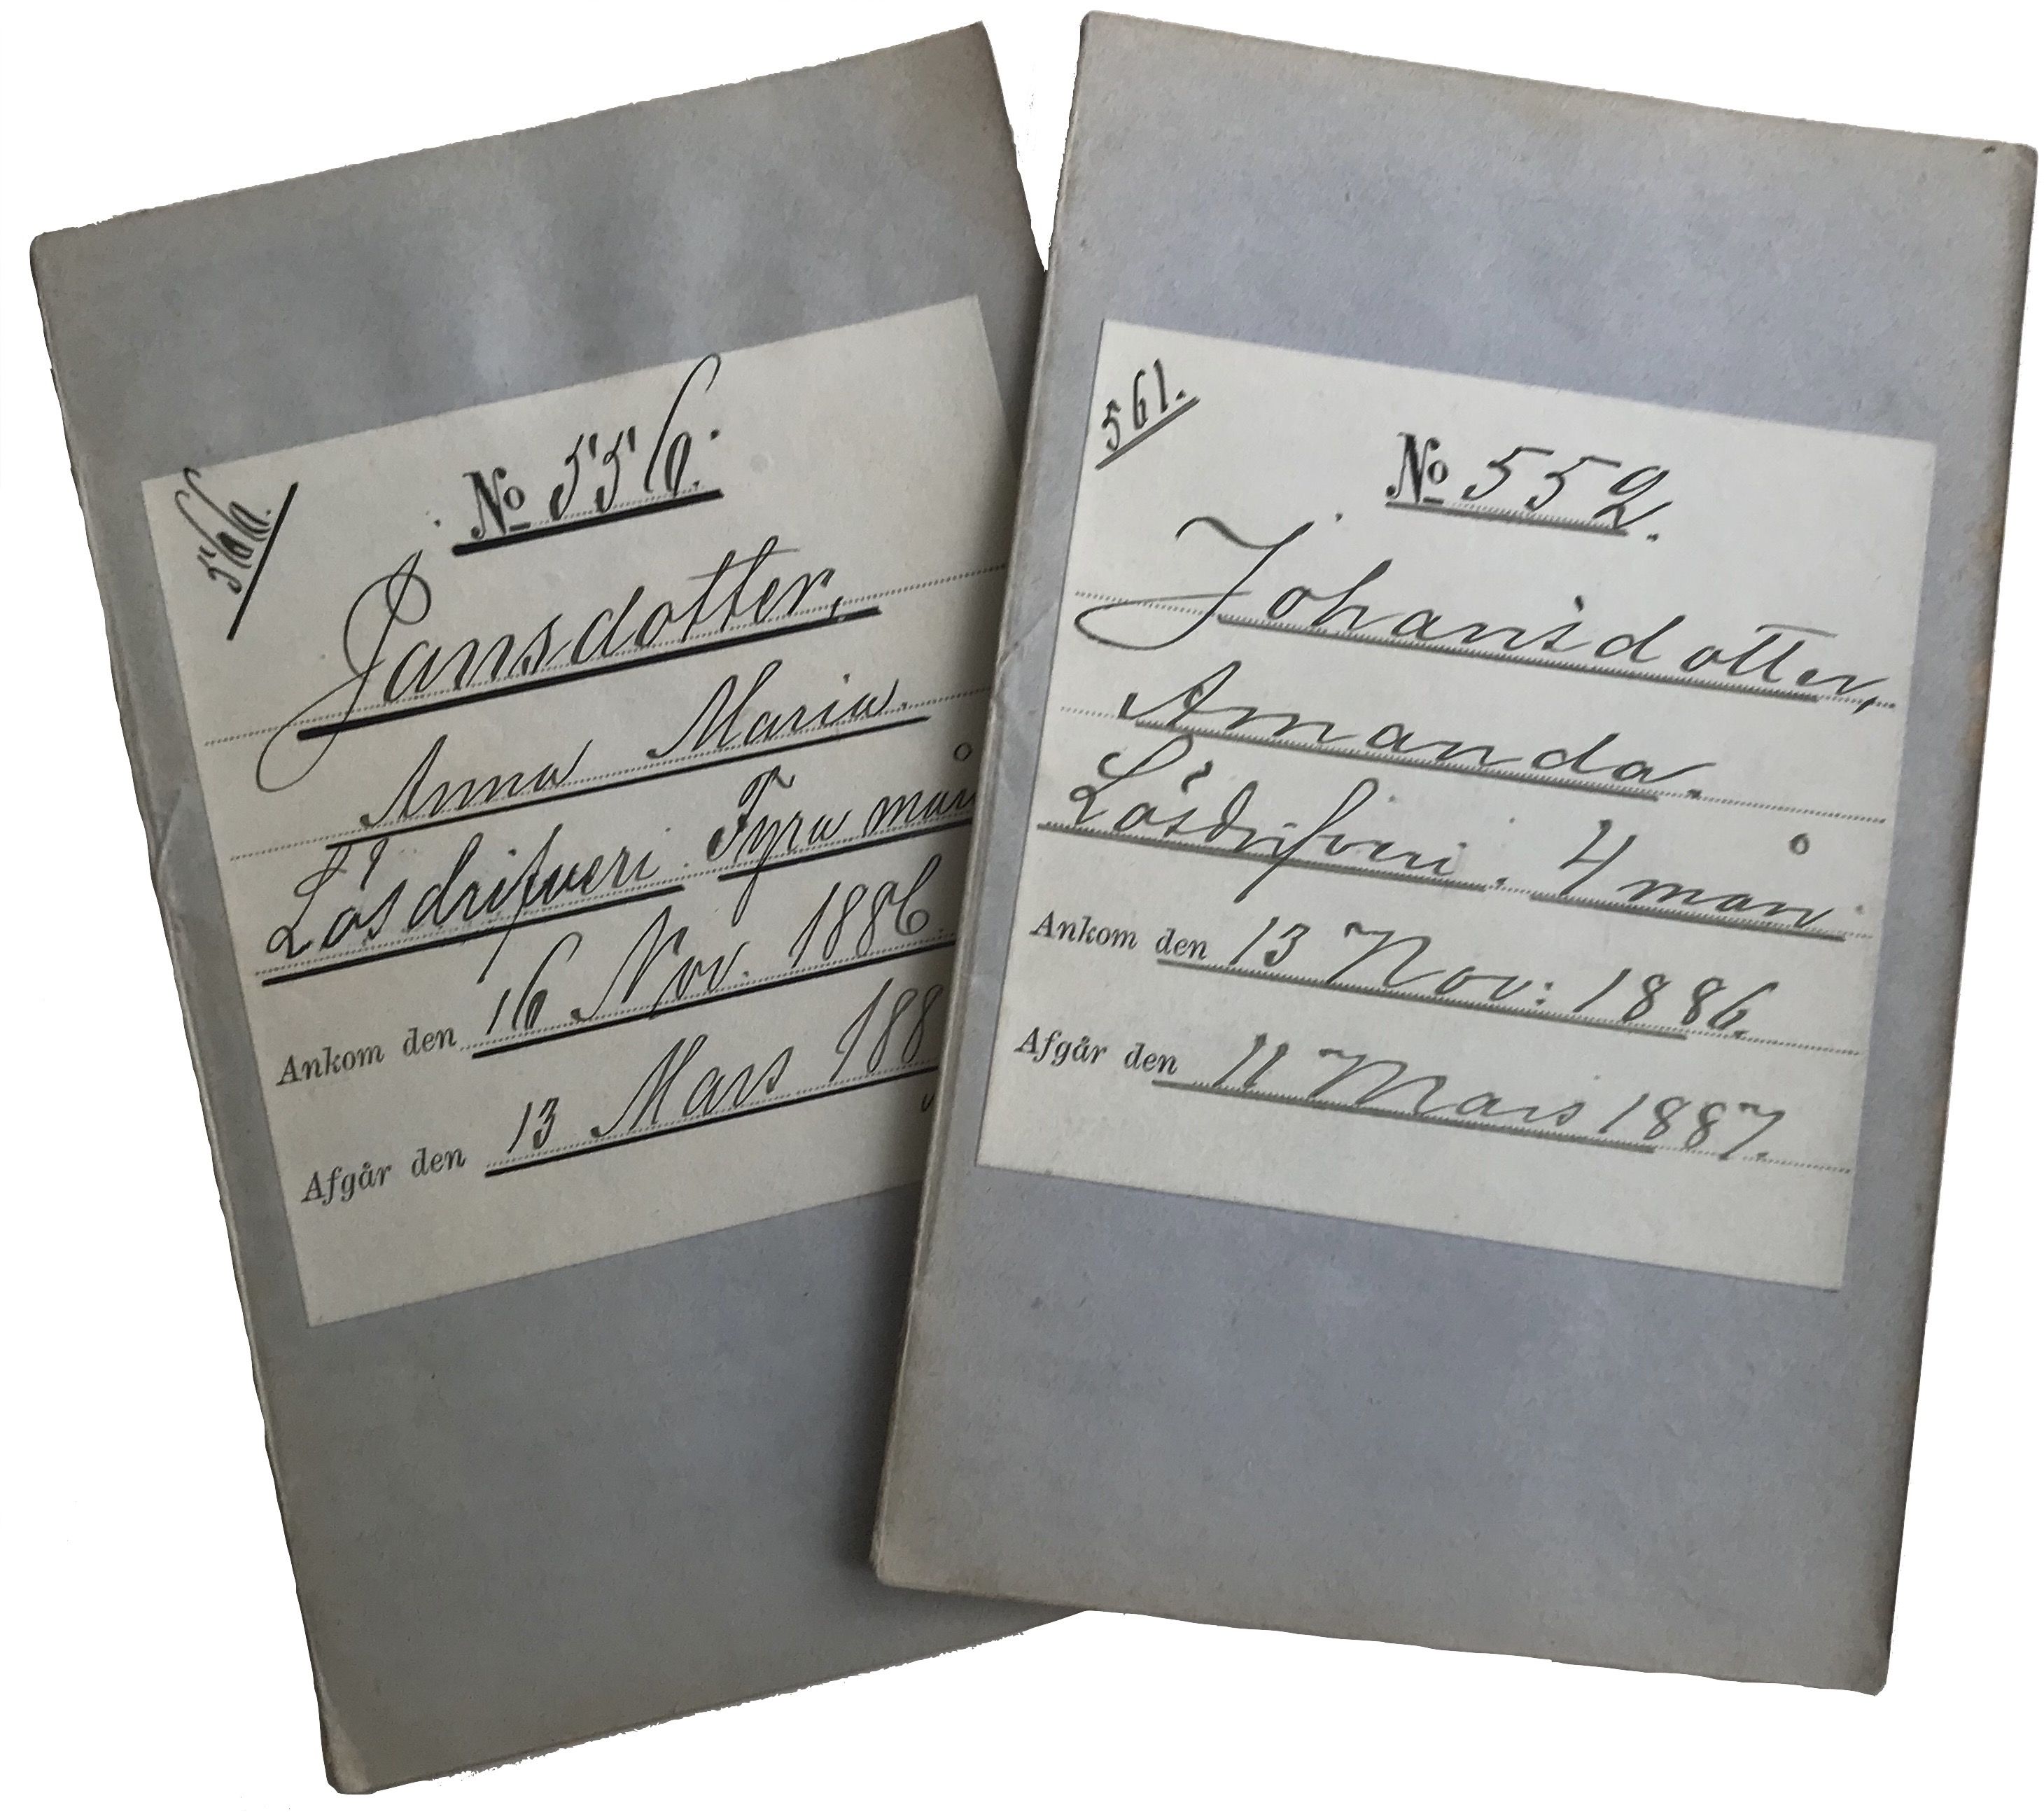 566.
No 556.
Jansdotter,
Anna Maria.
Lösdrifveri. Fyra mån
Ankom den 16 Nov. 1886.
Afgår den 13 Mars 188
561.
No 552.
Johansdotter,
Amanda.
Lösdrifveri. 4 mån
Ankom den 13 Nov: 1886.
Afgår den 11 Mars 1887.